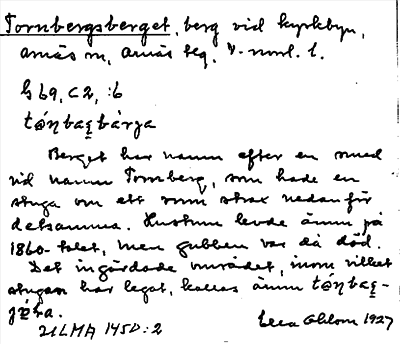 Tornbergsberget, berg vid kyrkbyn,
Arnäs sn, Arnäs tlg, V.-norrl. l.
G 69, C2, :6
Berget har namn efter en smed
vid namn Tornberg, som hade en
stuga om ett rum strax nedanför
detsamma. Hustrun levde ännu på
1860-talet, men gubben var då död.
Det ingärdade området, inom vilket
stugan har legat, kallas ännu
ULMA 1450:2
Ohlson 1927